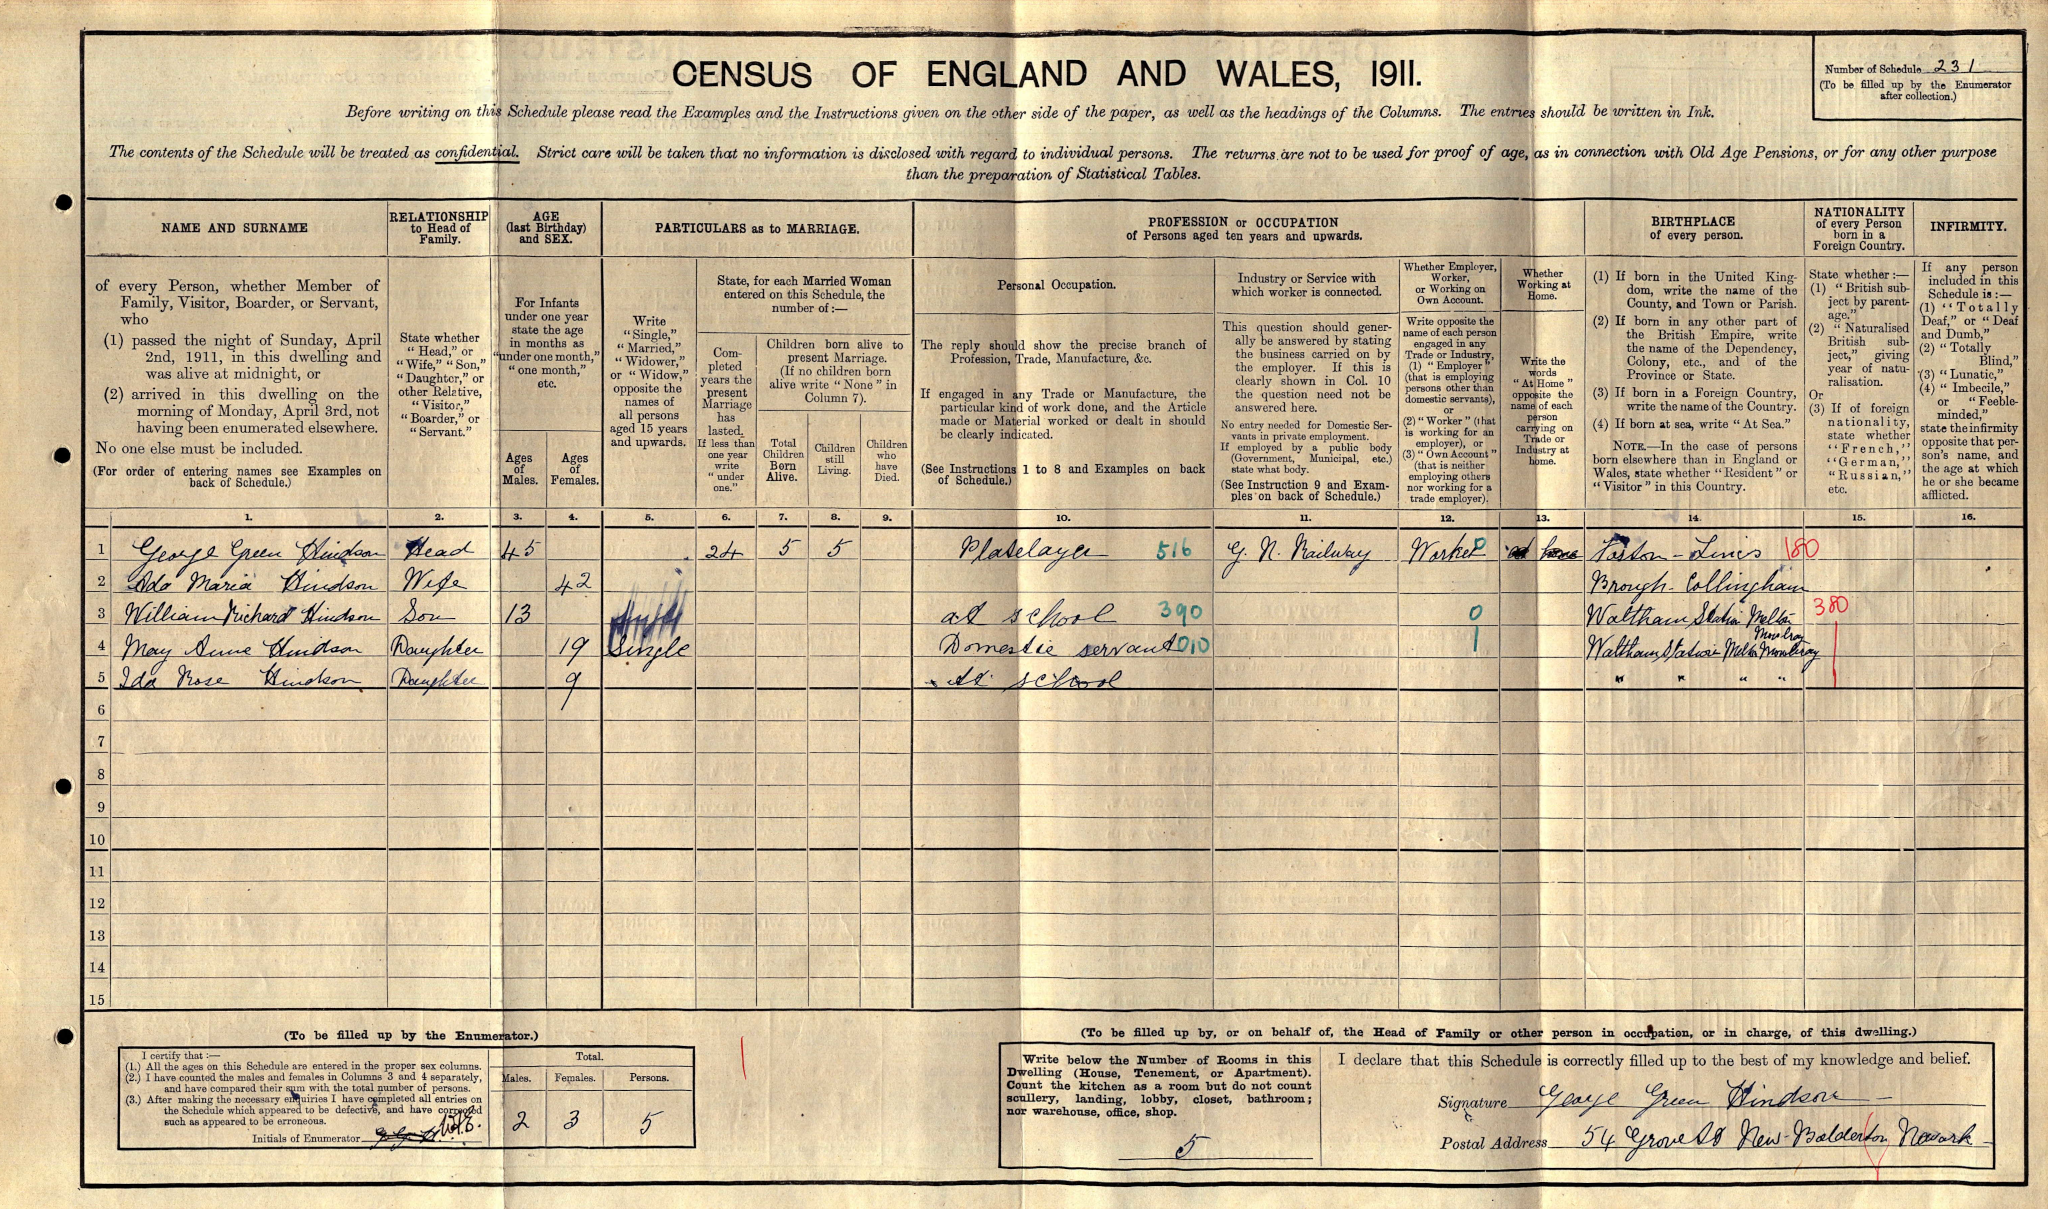 CENSUS OF ENGLAND AND WALES, 1911.
Number of Schedule 231
(To be filled up by the Enumerator
after collection.)
Before writing on this Schedule please read the Examples and the Instructions given on the other side of the paper, as well as the headings of the Columns. The entries should be written in Ink.
The contents of the Schedule will be treated as confidential. Strict care will be taken that no information is disclosed with regard to individual persons. The returns are not to be used for proof of age, as in connection with Old Age Pensions, or for any other purpose
than the preparation of Statistical Tables.
NAME AND SURNAME
of every Person, whether Member of
Family, Visitor, Boarder, or Servant,
who
(1) passed the night of Sunday, April
2nd, 1911, in this dwelling and
was alive at midnight, or
(2) arrived in this dwelling on the
morning of Monday, April 3rd, not
having been enumerated elsewhere.
No one else must be included.
(For order of entering names see Examples on
back of Schedule.)
RELATIONSHIP
to Head of
Family.
State whether
"Head," or
"Wife," "Son,"
"Daughter," or
other Relative,
"Visitor,"
"Boarder," or
"Servant."
AGE
(last Birthday)
and SEX.
For Infants
under one year
state the age
in months as
"under one month,"
"one month,"
etc.
Ages
of
Males.
Ages
of
Females.
PARTICULARS as to MARRIAGE.
Write
"Single,"
"Married,"
"Widower,"
or "Widow,"
opposite the
names of
all persons
aged 15 years
and upwards.
State, for each Married Woman
entered on this Schedule, the
number of:—
Com-
pleted
years the
present
Marriage
has
lasted.
If less than
one year
write
"under
one."
Children born alive to
present Marriage.
(If no children born
alive write "None" in
Column 7).
Total
Children
Born
Alive.
Children
still
Living.
Children
who
have
Died.
PROFESSION or OCCUPATION
of Persons aged ten years and upwards.
Personal Occupation.
The reply should show the precise branch of
Profession, Trade, Manufacture, &c.
If engaged in any Trade or Manufacture, the
particular kind of work done, and the Article
made or Material worked or dealt in should
be clearly indicated.
(See Instructions 1 to 8 and Examples on back
of Schedule.)
Industry or Service with
which worker is connected.
This question should gener-
ally be answered by stating
the business carried on by
the employer. If this is
clearly shown in Col. 10
the question need not be
answered here.
No entry needed for Domestic Ser-
vants in private employment.
If employed by a public body
(Government, Municipal, etc.)
state what body.
(See Instruction 9 and Exam-
ples on back of Schedule.)
Whether Employer,
Worker,
or Working on
Own Account.
Write opposite the
name of each person
engaged in any
Trade or Industry,
(1) "Employer"
(that is employing
persons other than
domestic servants),
or
(2) "Worker" (that
is working for an
employer), or
(3) "Own Account"
(that is neither
employing others
nor working for a
trade employer).
Whether
Working at
Home.
Write the
words
"At Home"
opposite the
name of each
person
carrying on
Trade or
Industry at
home.
BIRTHPLACE
of every person.
(1) If born in the United King-
dom, write the name of the
County, and Town or Parish.
(2) If born in any other part of
the British Empire, write
the name of the Dependency,
Colony, etc., and of the
Province or State.
(3) If born in a Foreign Country,
write the name of the Country.
(4) If born at sea, write "At Sea."
NOTE.—In the case of persons
born elsewhere than in England or
Wales, state whether "Resident" or
"Visitor" in this Country.
NATIONALITY
of every Person
born in a
Foreign Country.
State whether:—
(1) "British sub-
ject by parent-
age."
(2) "Naturalised
British sub-
ject," giving
year of natu-
ralisation.
Or
(3) If of foreign
nationality,
state whether
"French,"
"German,"
"Russian,"
etc.
INFIRMITY.
If any person
included in this
Schedule is:—
(1) "Totally
Deaf," or "Deaf
and Dumb,"
(2) "Totally
Blind,"
(3) "Lunatic,"
(4) "Imbecile,"
or "Feeble-
minded,"
state the infirmity
opposite that per-
son's name, and
the age at which
he or she became
afflicted.
1. 2. 3. 4. 5. 6. 7. 8. 9. 10. 11. 12. 13. 14. 15. 16.
1 George Green Hindson Head 45 24 5 5 Platelayer 516 G. N. Railway Worker 0 Foston - Lincs 180
2 Ada Maria Hindson Wife 42 Brough Collingham
3 William Richard Hindson Son 13 at school 390 0 Waltham Station Melton Mowbray 380
4 May Anne Hindson Daughter 19 Single Domestic servant 010 1 Waltham Station Melton Mowbray
5 Ida Rose Hindson Daughter 9 At school " " " "
6
7
8
9
10
11
12
13
14
15
(To be filled up by the Enumerator.)
I certify that:—
(1.) All the ages on this Schedule are entered in the proper sex columns.
(2.) I have counted the males and females in Columns 3 and 4 separately,
and have compared their sum with the total number of persons.
(3.) After making the necessary enquiries I have completed all entries on
the Schedule which appeared to be defective, and have corrected
such as appeared to be erroneous.
Initials of Enumerator
Total.
Males. Females. Persons.
2 3 5
(To be filled up by, or on behalf of, the Head of Family or other person in occupation, or in charge, of this dwelling.)
Write below the Number of Rooms in this
Dwelling (House, Tenement, or Apartment).
Count the kitchen as a room but do not count
scullery, landing, lobby, closet, bathroom;
nor warehouse, office, shop.
5
I declare that this Schedule is correctly filled up to the best of my knowledge and belief.
Signature George Green Hindson
Postal Address 54 Grove St New Balderton Newark